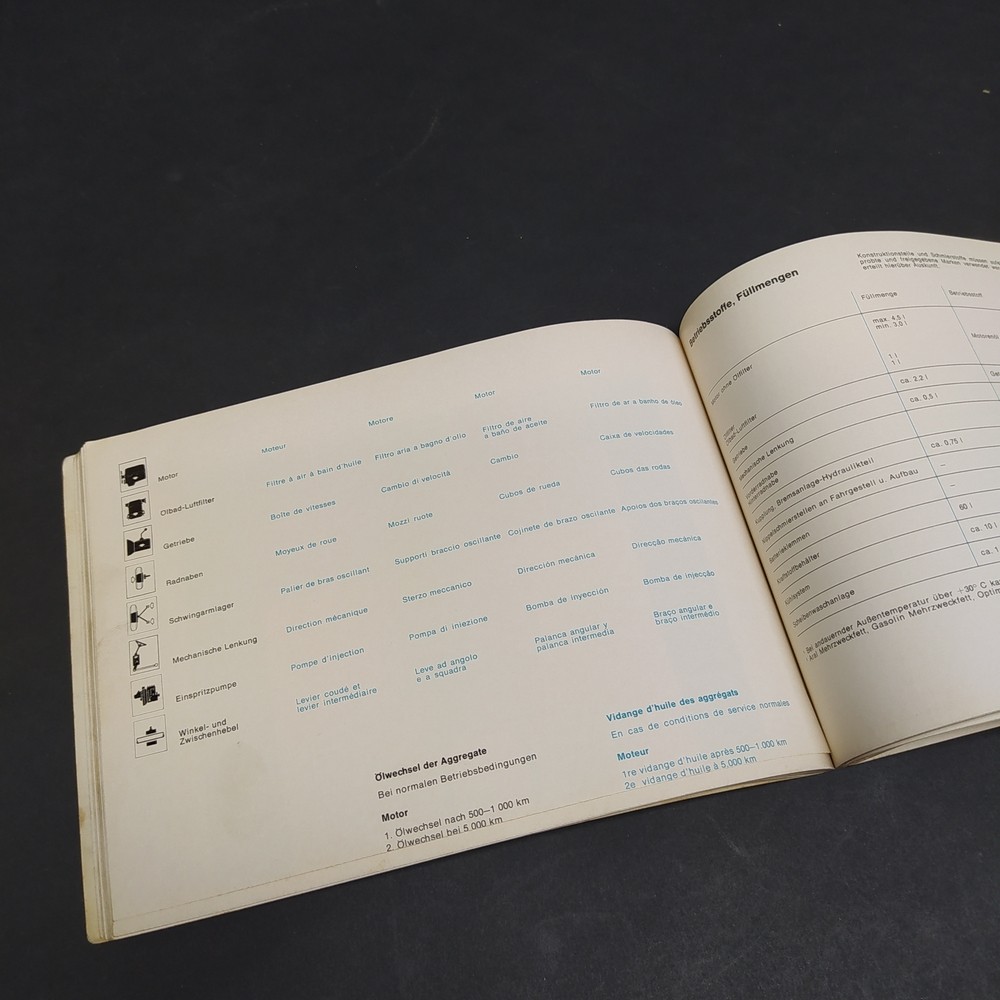 Motor
Ölbad-Luftfilter
Getriebe
Radnaben
Schwingarmlager
Mechanische Lenkung
Einspritzpumpe
Winkel- und
Zwischenhebel
Moteur
Filtre à air à bain d'huile
Boîte de vitesses
Moyeux de roue
Palier de bras oscillant
Direction mécanique
Pompe d'injection
Levier coudé et
levier intermédiaire
Motore
Filtro aria a bagno d'olio
Cambio di velocità
Mozzi ruote
Supporti braccio oscillante
Sterzo meccanico
Pompa di iniezione
Leve ad angolo
e a squadra
Motor
Filtro de aire
a baño de aceite
Cambio
Cubos de rueda
Cojinete de brazo oscilante
Dirección mecánica
Bomba de inyección
Palanca angular y
palanca intermedia
Motor
Filtro de ar a banho de óleo
Caixa de velocidades
Cubos das rodas
Apoios dos braços oscilantes
Direcção mecânica
Bomba de injecção
Braço angular e
braço intermédio
Ölwechsel der Aggregate
Bei normalen Betriebsbedingungen
Motor
1. Ölwechsel nach 500–1 000 km
2. Ölwechsel bei 5 000 km
Vidange d'huile des aggrégats
En cas de conditions de service normales
Moteur
1re vidange d'huile après 500–1.000 km
2e vidange d'huile à 5.000 km
Betriebsstoffe, Füllmengen
Konstruktionsteile und Schmierstoffe müssen
probte und freigegebene Marken verwendet
erteilt hierüber Auskunft.
Füllmenge
Betriebsstoff
Motor ohne Ölfilter
max. 4,5 l
min. 3,0 l
Motorenöl
Ölfilter
1 l
Ölbad-Luftfilter
1 l
Getriebe
ca. 2,2 l
Mechanische Lenkung
ca. 0,5 l
Vorderradnabe
Hinterradnabe
Kupplung, Bremsanlage-Hydraulikteil
ca. 0,75 l
Nippelschmierstellen an Fahrgestell u. Aufbau
–
Batterieklemmen
–
Kraftstoffbehälter
60 l
Kühlsystem
ca. 10 l
Scheibenwaschanlage
ca. 1
Bei andauernder Außentemperatur über +30° C
Aral Mehrzweckfett, Gasolin Mehrzweckfett,